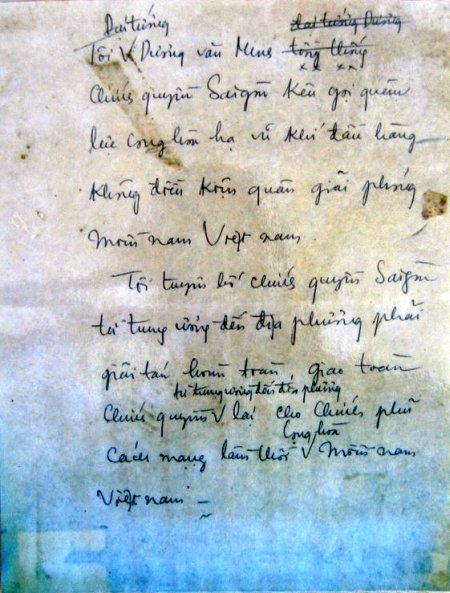 Đại tướng đại tướng Dương
Tôi V Dương văn Minh tổng thống
Chính quyền Saigòn kêu gọi quân
lực cộng hòa hạ vũ khí đầu hàng
không điều kiện quân giải phóng
miền nam Việt nam
Tôi tuyên bố chính quyền Saigòn
từ trung ương đến địa phương phải
giải tán hoàn toàn, giao toàn
từ trung ương đến địa phương
chính quyền V lại cho chính phủ
Cộng hòa
Cách mạng lâm thời V Miền nam
Việt nam